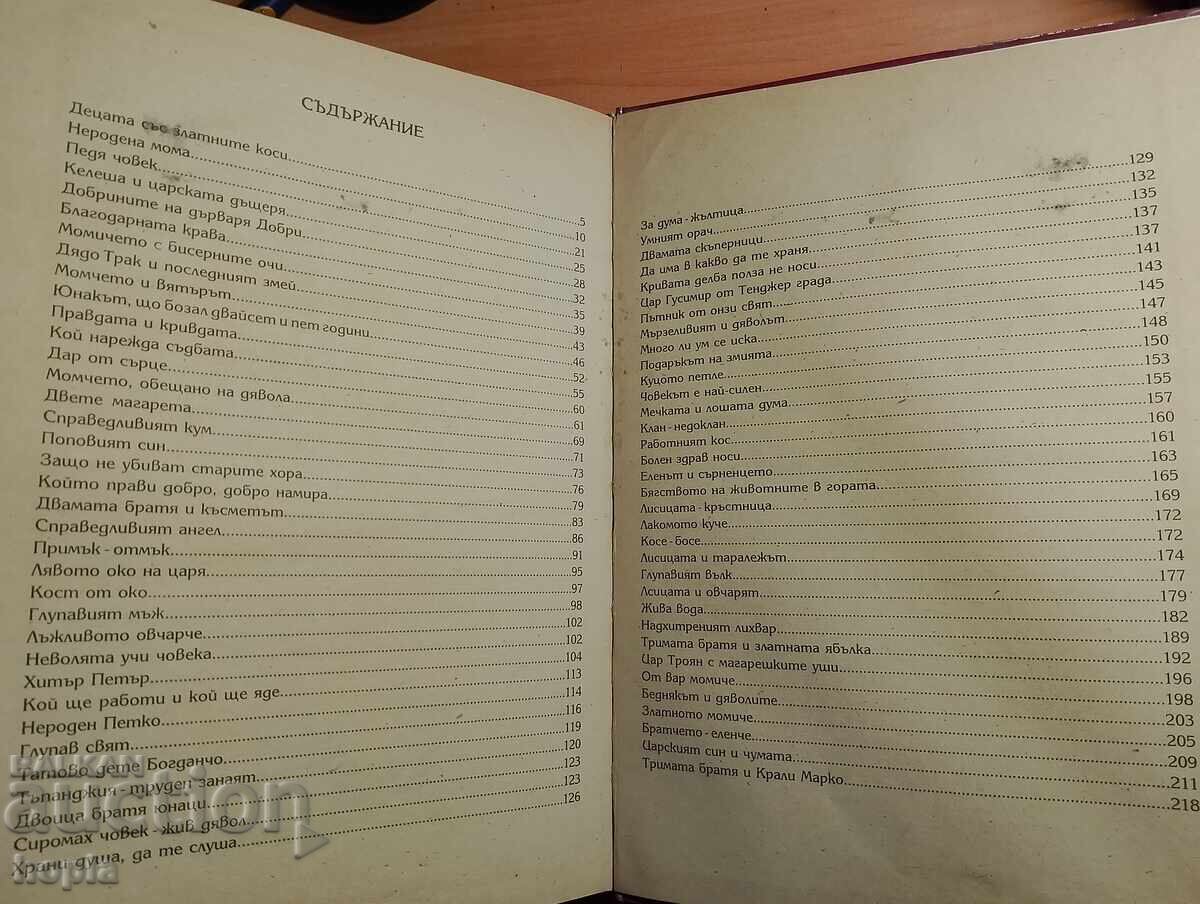 СЪДЪРЖАНИЕ
Децата със златните коси.....5
Неродена мома.....10
Педя човек.....21
Келеша и царската дъщеря.....25
Добрините на дърваря Добри.....28
Благодарната крава.....32
Момичето с бисерните очи.....35
Дядо Трак и последният змей.....39
Момчето и Вятърът.....43
Юнакът, що бозал двайсет и пет години.....46
Правдата и кривдата.....52
Кой нарежда съдбата.....55
Дар от сърце.....60
Момчето, обещано на дявола.....61
Двете магарета.....69
Справедливият кум.....71
Поповият син.....73
Защо не убиват старите хора.....76
Който прави добро, добро намира.....79
Двамата братя и късметът.....83
Справедливият ангел.....86
Примък - отмък.....91
Лявото око на царя.....95
Кост от око.....97
Глупавият мъж.....98
Лъжливото овчарче.....102
Неволята учи човека.....102
Хитър Петър.....104
Кой ще работи и кой ще яде.....113
Нероден Петко.....114
Глупав свят.....116
Татово дете Богданчо.....119
Тъпанджия - труден занаят.....120
Двоица братя юнаци.....123
Сиромах човек - жив дявол.....123
Храни душа, да те слуша.....126
За дума - жълтица.....129
Умният орач.....132
Двамата скъперници.....135
Да има в какво да те храня.....137
Кривата делба полза не носи.....137
Цар Гусимир от Тенджер града.....141
Пътник от онзи свят.....143
Мързеливият и дяволът.....145
Много ли ум се иска.....147
Подаръкът на змията.....148
Куцото петле.....150
Човекът е най-силен.....153
Мечката и лошата дума.....155
Клан - недоклан.....157
Работният кос.....160
Болен здрав носи.....161
Еленът и сърненцето.....163
Бягството на животните в гората.....165
Лисицата - кръстница.....169
Лакомото куче.....172
Косе - босе.....172
Лисицата и таралежът.....174
Глупавият вълк.....177
Лсицата и овчарят.....179
Жива вода.....182
Надхитреният лихвар.....189
Тримата братя и златната ябълка.....192
Цар Троян с магарешките уши.....196
От вар момиче.....198
Беднякът и дяволите.....203
Златното момиче.....205
Братчето - еленче.....209
Царският син и чумата.....211
Тримата братя и Крали Марко.....218
БАЛКАН
auction
hopla